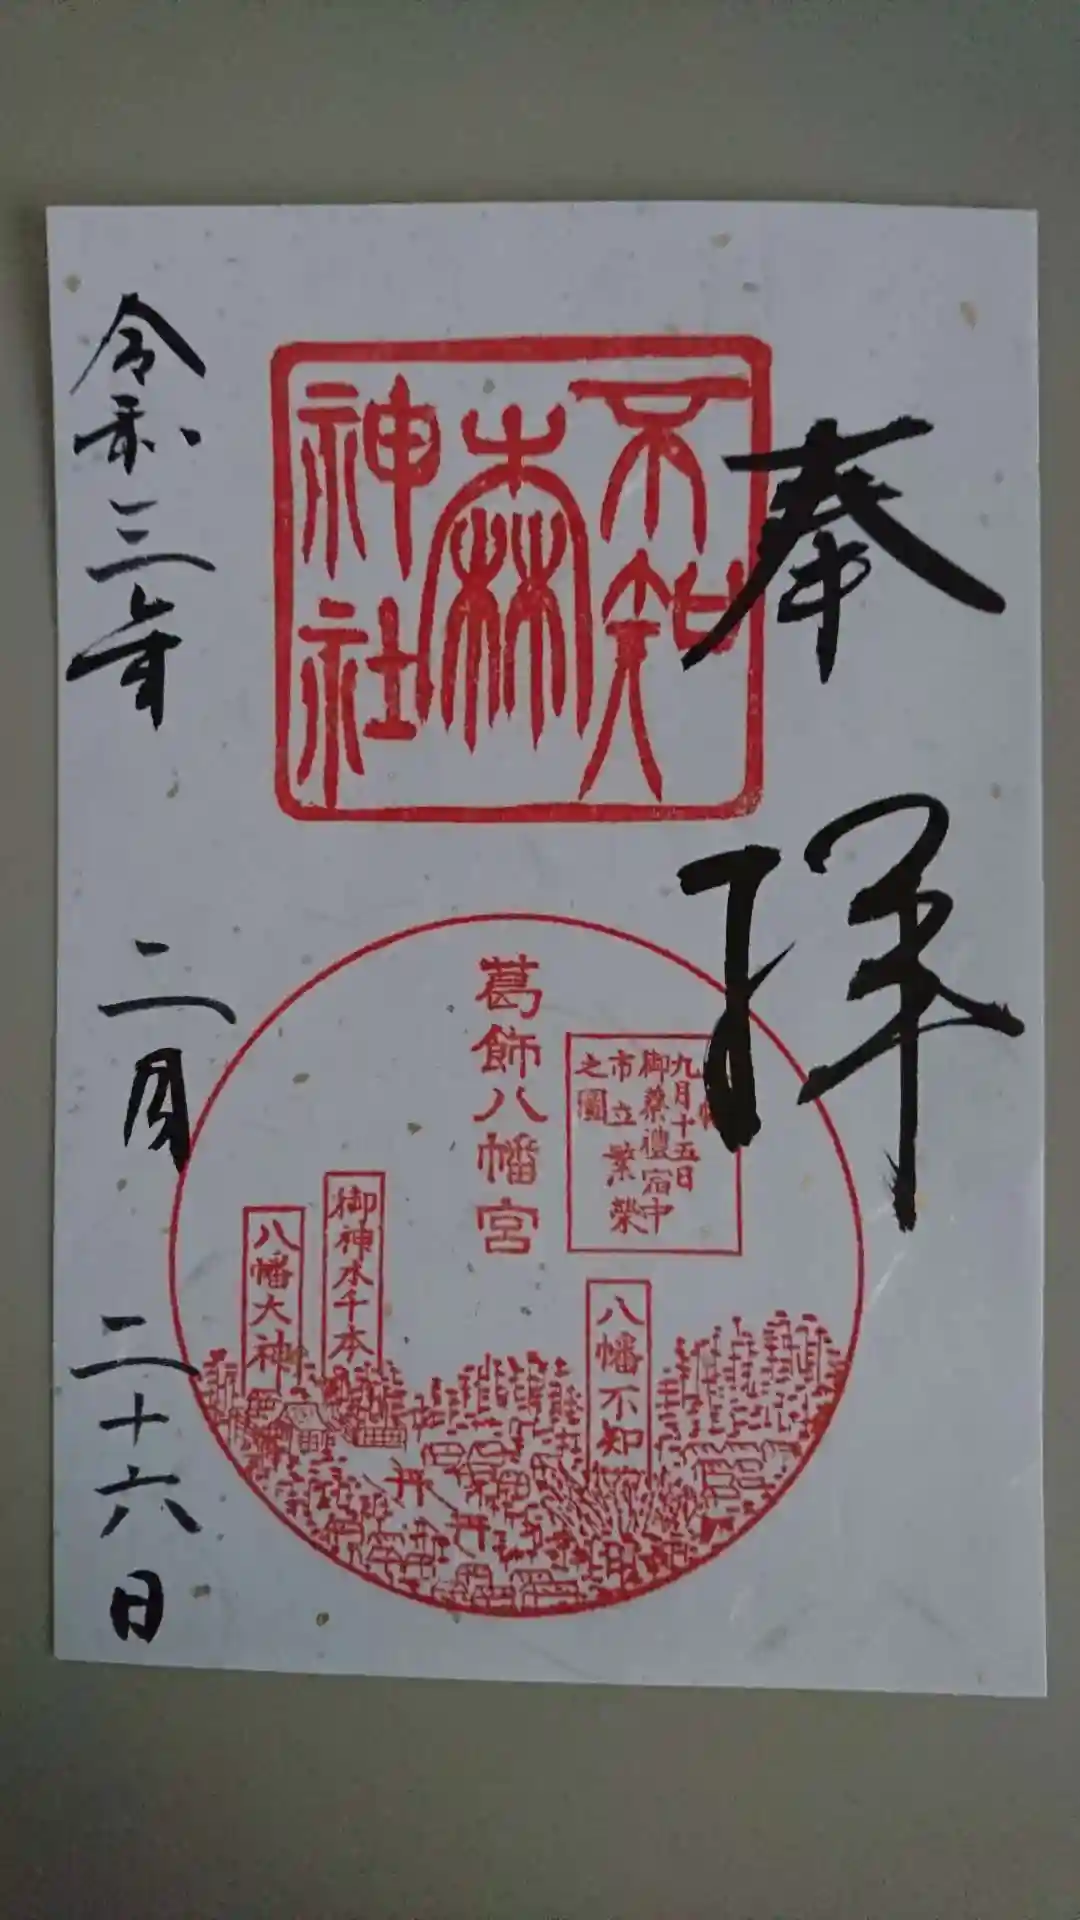 奉拝
不知
森
神社
葛飾八幡宮
九月十五日
御祭禮宿中
市立繁榮
之圖
八幡不知
御神木千本
八幡大神
令和三年
二月
二十六日